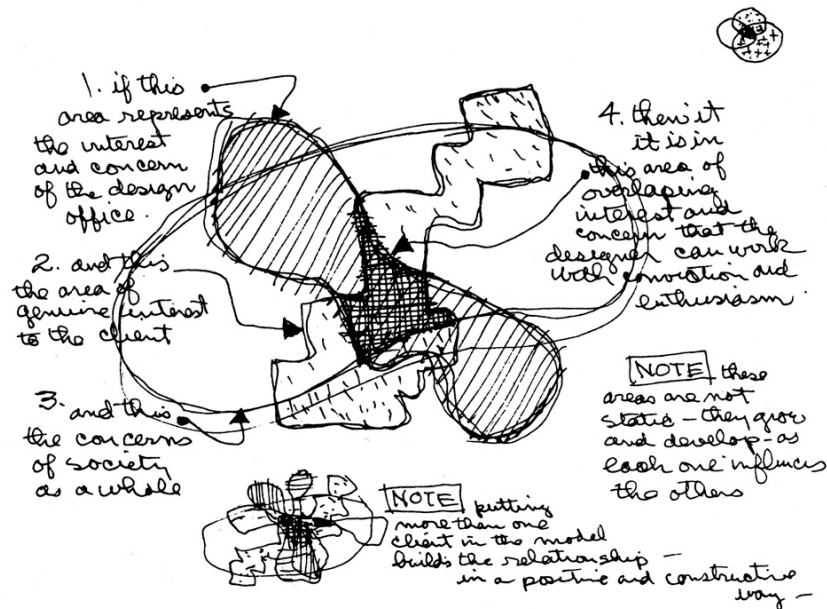 1. if this
area represents
the interest
and concern
of the design
office.
2. and this
the area of
genuine interest
to the client
3. and this
the concerns
of society
as a whole
4. then it
it is in
this area of
overlaping
interest and
concern that the
designer can work
with conviction and
enthusiasm.
NOTE these
areas are not
static - they grow
and develop - as
each one influences
the others
NOTE putting
more than one
client in the model
builds the relationship —
in a positive and constructive
way —